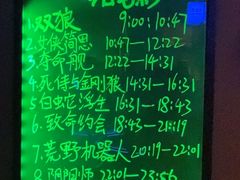 1.双狼 9:00:10:47
2.女侠简思 10:47—12:22
3.夺命舰 12:22—14:31
4.死侍与金刚狼 14:31—16:31
5.白蛇:浮生 16:31—18:43
6.致命约会 18:43—20:19
7.荒野机器人 20:19—22:01
8.阴阳师 22:01—23:56